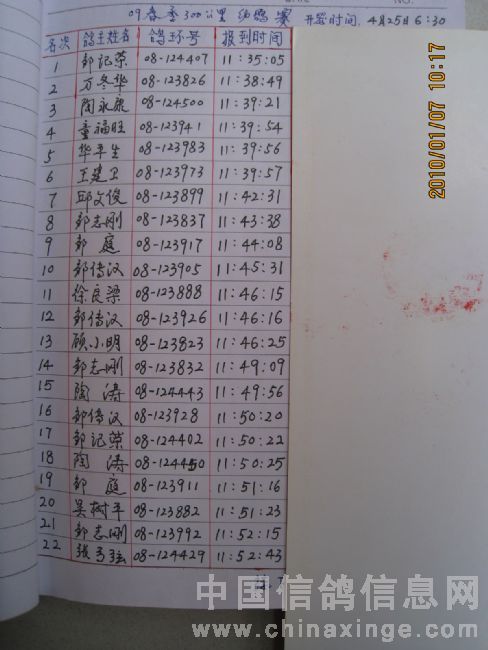 09春季300公里 幼鸽赛 开笼时间: 4月25日 6:30
名次 鸽主姓名 鸽环号 报到时间
1 邹记荣 08-124407 11:35:05
2 万冬华 08-123826 11:38:49
3 陶永康 08-124500 11:39:21
4 童福旺 08-123941 11:39:54
5 华平生 08-123983 11:39:56
6 王建卫 08-123973 11:39:57
7 邱文俊 08-123899 11:42:31
8 邹志刚 08-123837 11:43:38
9 邹庭 08-123917 11:44:08
10 邹传汉 08-123905 11:45:31
11 徐良梁 08-123888 11:46:15
12 邹传汉 08-123926 11:46:16
13 顾小明 08-123823 11:46:25
14 邹志刚 08-123832 11:49:09
15 陶涛 08-124443 11:49:56
16 邹传汉 08-123928 11:50:20
17 邹记荣 08-124402 11:50:22
18 陶涛 08-124450 11:50:25
19 邹庭 08-123911 11:51:16
20 吴树平 08-123882 11:51:23
21 邹志刚 08-123992 11:52:15
22 张弓弦 08-124429 11:52:43
2010/01/07 10:17
中国信鸽信息网
www.chinaxinge.com